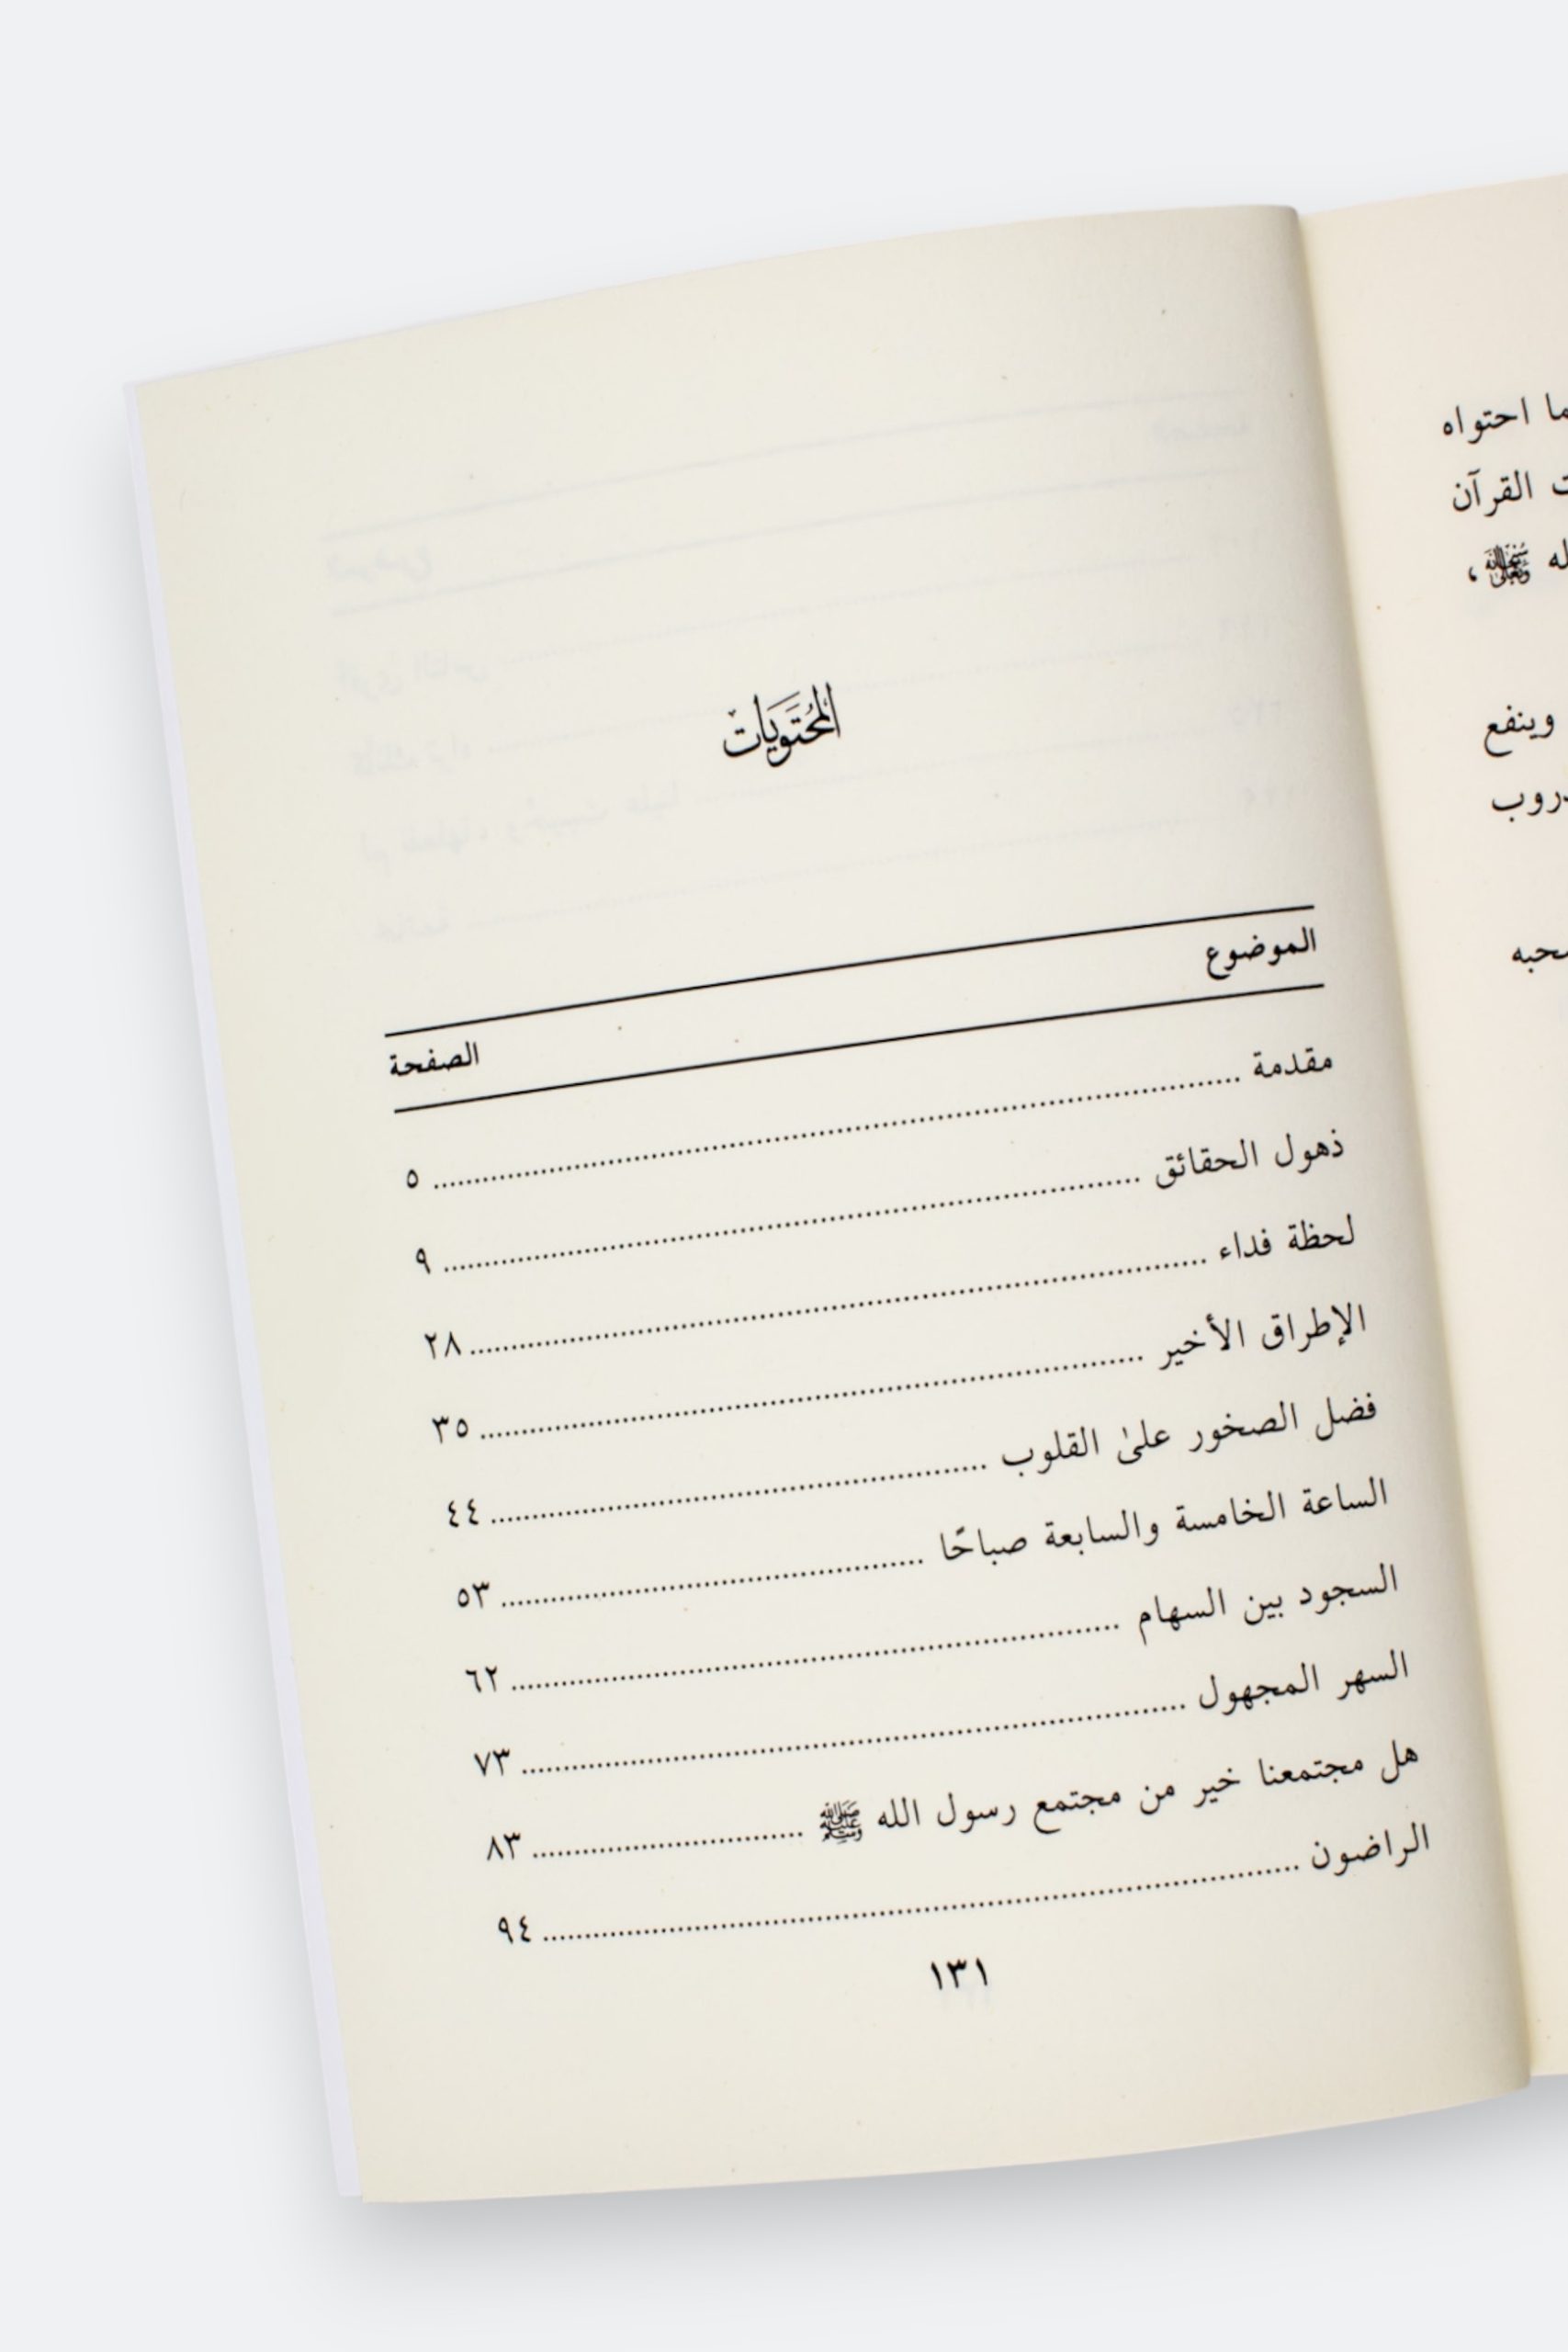 ما احتواه
القرآن
وينفع
المحتويات
الموضوع
الصفحة
مقدمة ........ ٥
ذهول الحقائق ........ ٩
لحظة فداء ........ ٢٨
الإطراق الأخير ........ ٣٥
فضل الصخور علىٰ القلوب ........ ٤٤
الساعة الخامسة والسابعة صباحًا ........ ٥٣
السجود بين السهام ........ ٦٢
السهر المجهول ........ ٧٣
هل مجتمعنا خير من مجتمع رسول الله ﷺ ........ ٨٣
الراضون ........ ٩٤
١٣١